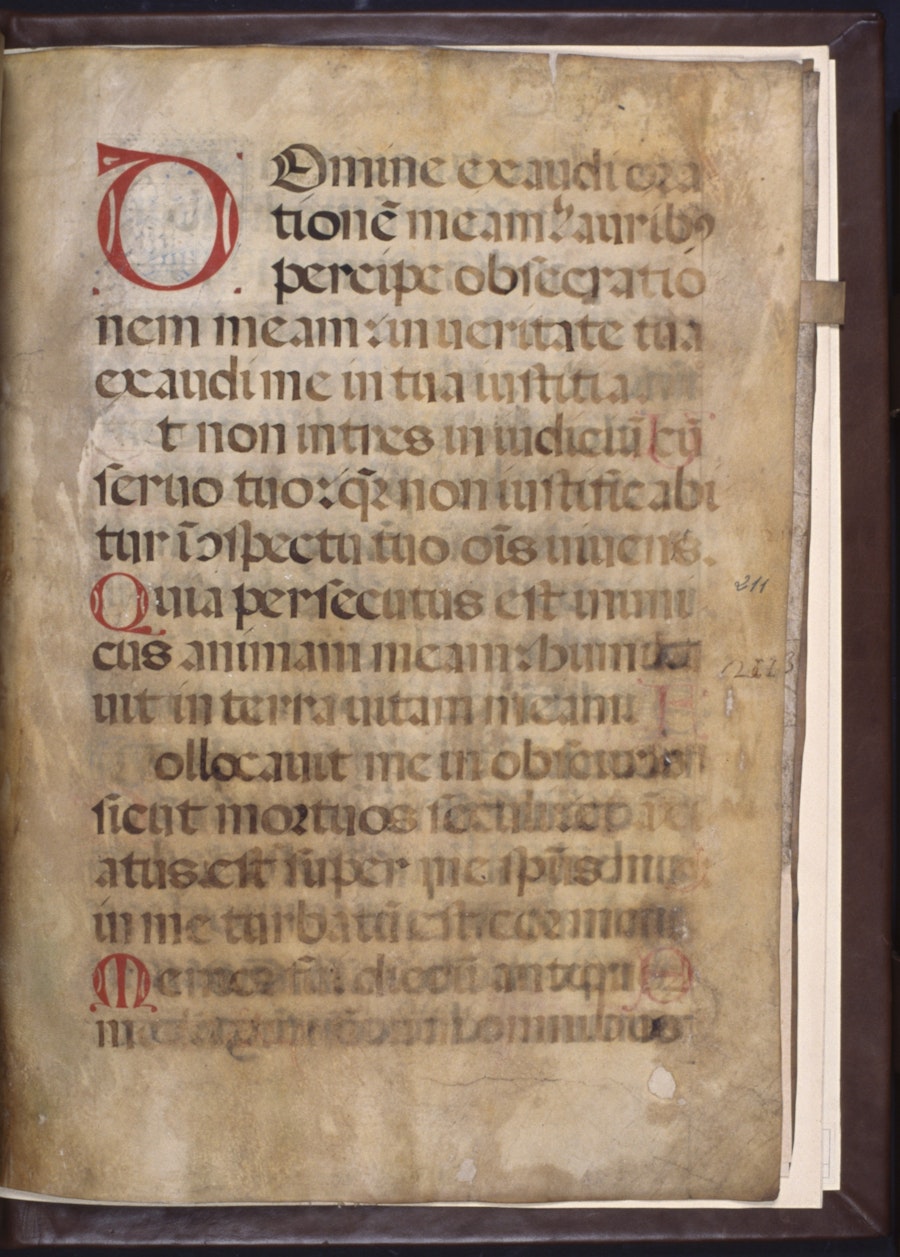 DOmine exaudi ora
tionē meam: auribꝯ
percipe obsecratio
nem meam: in ueritate tua
exaudi me in tua iustitia
t non intres in iudiciū cū
seruo tuo: qr̄ non iustificabi
tur ī ↄspectu tuo oīs uiuens.
Quia persecutus est inimi
cus animam meam: humilia
uit in terra uitam meam
ollocauit me in obscuris
sicut mortuos
atus est super me spūs
in me turbatū est cor
Me fū dierū antiqu
211